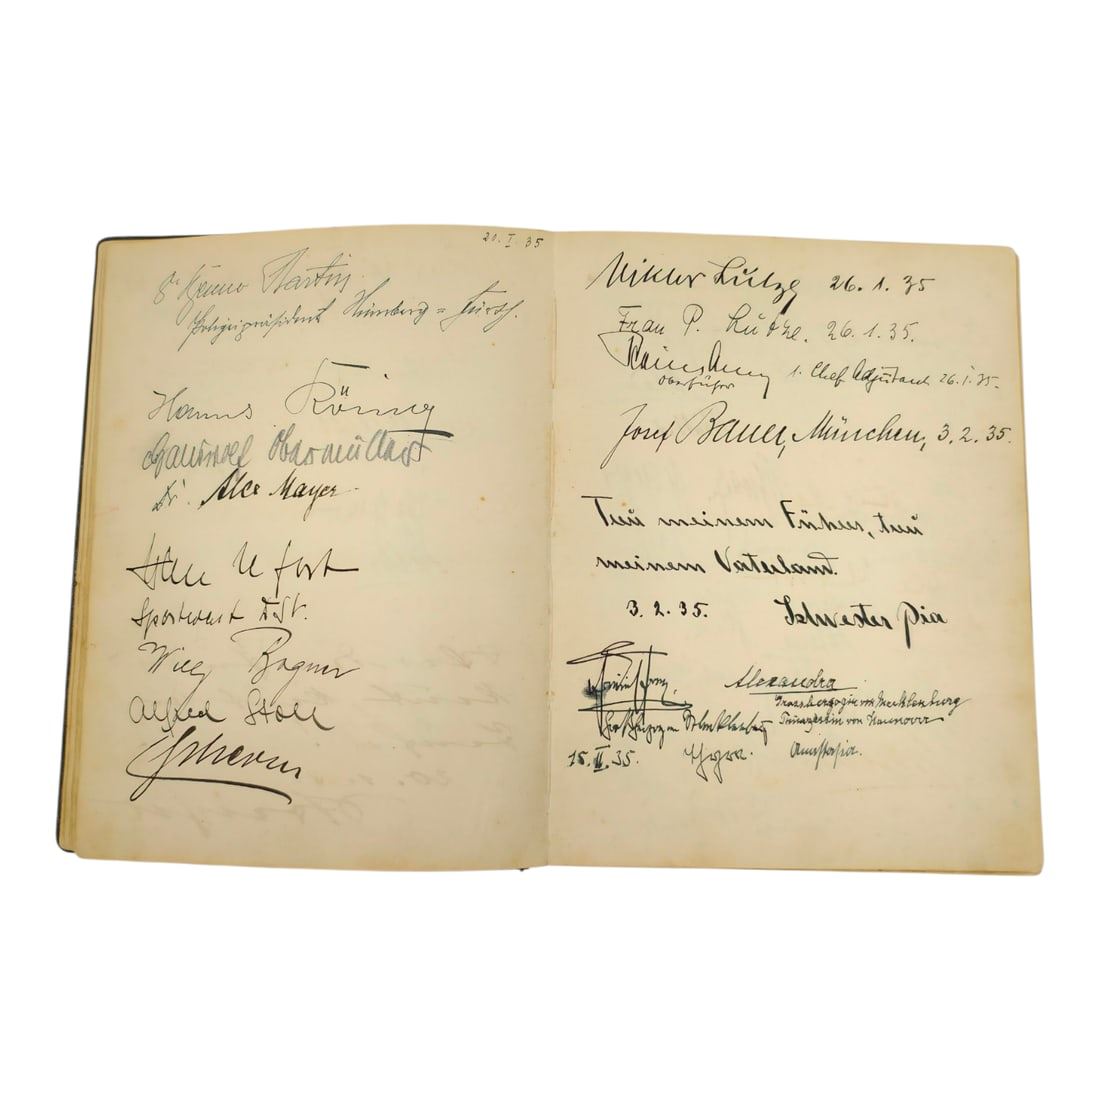 20. I. 35
Dr Benno Martin
Polizeipräsident Nürnberg = Fürth.
Hanns König
Obermüller
Dr. Alex Mayer
Ufort
Sportwart
Willy Bogner
Alfred Stoll
Viktor Lutze 26.1.35
Frau P. Lutze. 26.1.35.
Oberführer 1. Chef Adjutant 26.1.35.
Josef Bauer, München, 3.2.35.
Treu meinem Führer, treu
meinem Vaterland.
3.2.35. Schwester Pia
Alexandra
Grossherzogin von Mecklenburg
Prinzessin von Hannover
15. II. 35. Thyra Anastasia